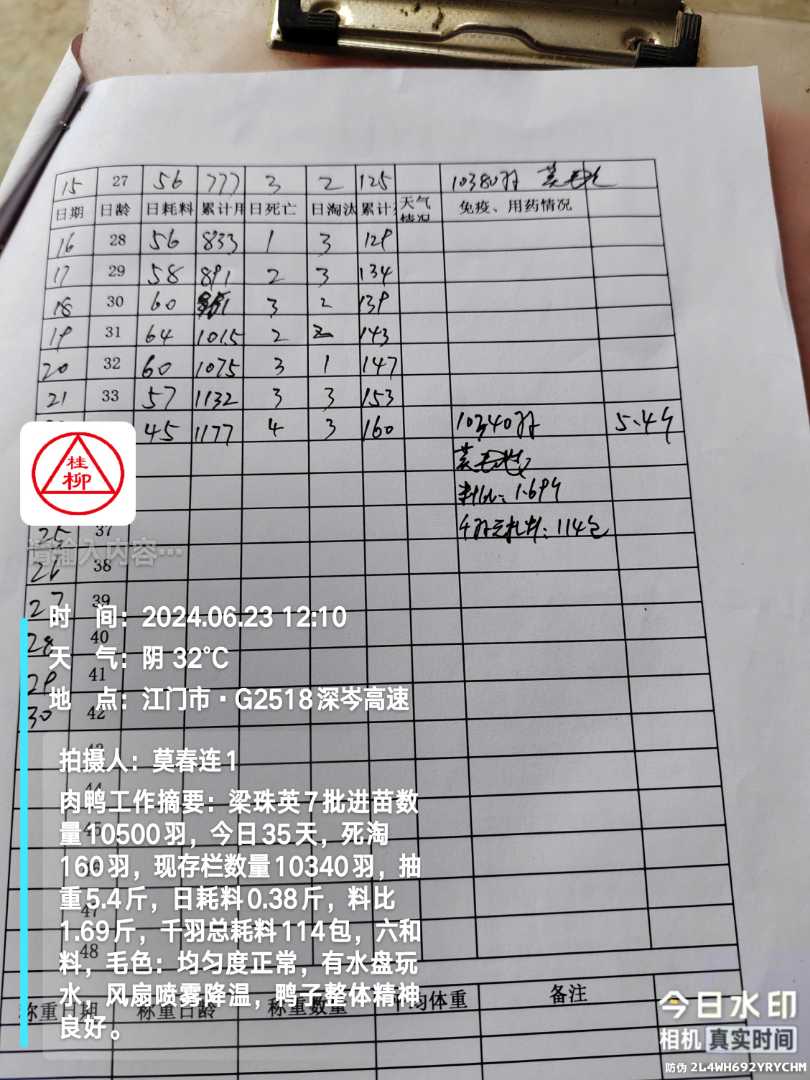 15 27 56 777 3 2 125 10380羽
日期 日龄 日耗料 累计用 日死亡 日淘汰 累计 天气情况 免疫、用药情况
16 28 56 833 1 3 129
17 29 58 891 2 3 134
18 30 60 3 2 139
19 31 64 1015 2 2 143
20 32 60 1075 3 1 147
21 33 57 1132 3 3 153
45 1177 4 3 160 10340羽 5.4斤
桂柳
料比: 1.69斤
25 37 千羽总耗料: 114包
请输入内容…
26 38
27 39
时 间: 2024.06.23 12:10
28 40
天 气: 阴 32℃
29 41
地 点: 江门市·G2518深岑高速
30 42
43
拍摄人: 莫春连1
44
肉鸭工作摘要: 梁珠英7批进苗数
量10500羽, 今日35天, 死淘
45
160羽, 现存栏数量10340羽, 抽
46
重5.4斤, 日耗料0.38斤, 料比
47
1.69斤, 千羽总耗料114包, 六和
48
料, 毛色: 均匀度正常, 有水盘玩
水, 风扇喷雾降温, 鸭子整体精神
良好。
称重日期 称重日龄 称重数量 平均体重 备注
今日水印
相机 真实时间
防伪 2L4WH692YRYCHM